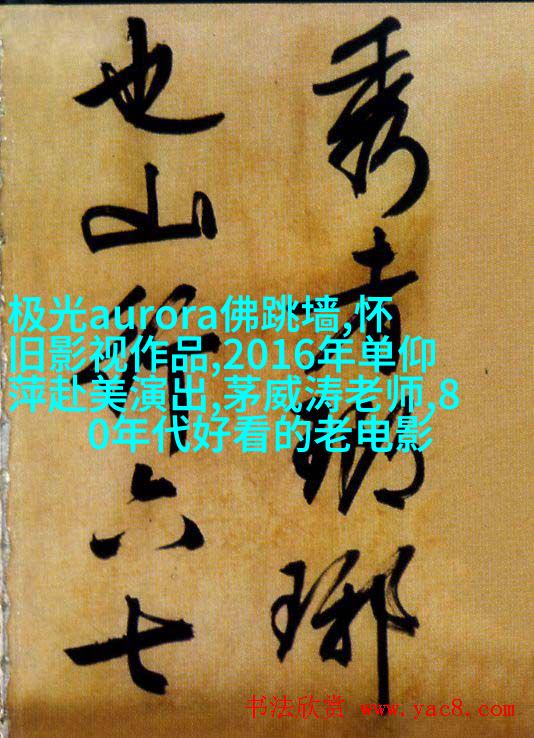 秀者瑯琊
也山行六七
极光aurora佛跳墙,怀
旧影视作品,2016年单仰
萍赴美演出,茅威涛老师,8
0年代好看的老电影
书法欣赏 www.yac8.com